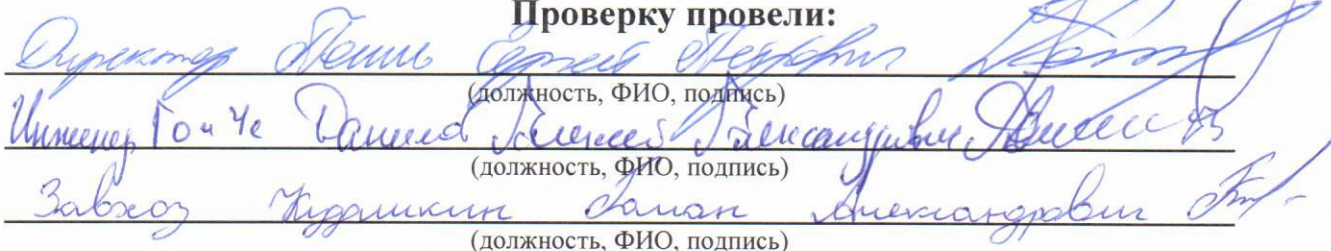 Проверку провели:
Директор Сергей Петрович
(должность, ФИО, подпись)
Инженер Го и Чс Данилов Алексей Александрович
(должность, ФИО, подпись)
Завхоз Кудашкин Роман Александрович
(должность, ФИО, подпись)